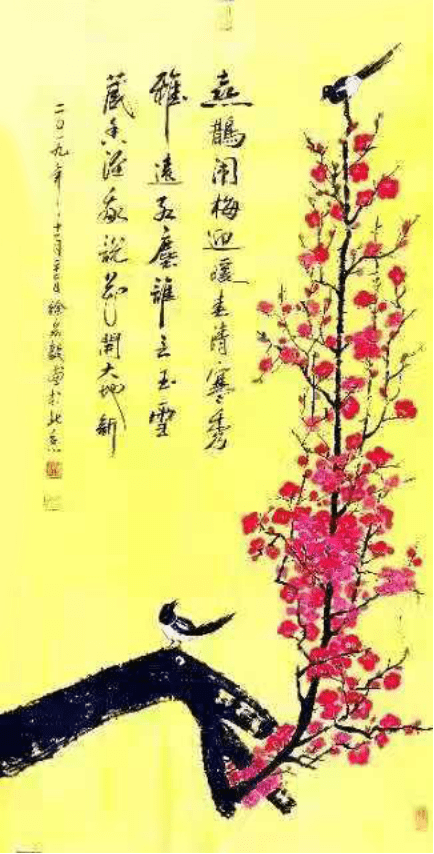 喜鹊闹梅迎暖春清寒秀
雅远红尘谁言玉雪
藏香泾 我说花开大地新
二〇一九年十一月 日徐 画于北京